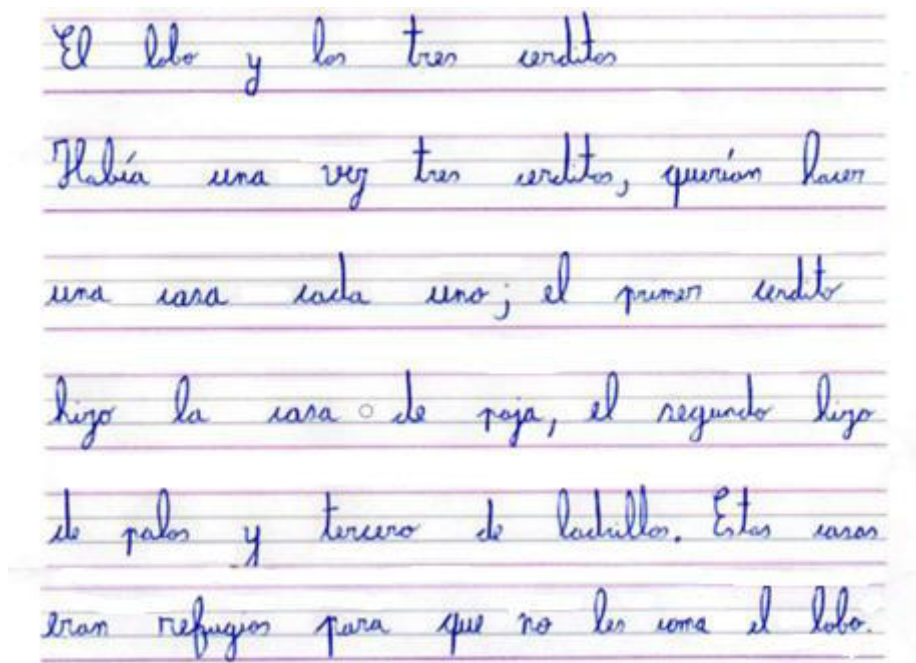 El lobo y los tres cerditos
Había una vez tres cerditos, querían hacer
una casa cada uno; el primer cerdito
hizo la casa de paja, el segundo hizo
de palos y tercero de ladrillos. Estas casas
eran refugios para que no les coma el lobo.